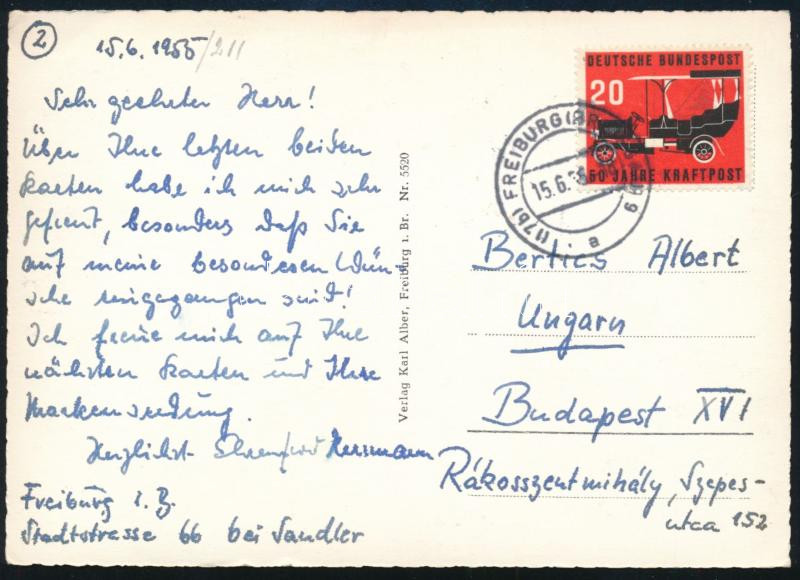 2
15.6.1955/211
Sehr geehrter Herr!
Über Ihre letzten beiden
Karten habe ich mich sehr
gefreut, besonders daß Sie
auf meine besonderen Wün-
sche eingegangen sind!
Ich freue mich auf Ihre
nächsten Karten und Ihre
Markensendung.
Herzlichst Hermann
Freiburg i. B.
Stadtstrasse 66 bei Sandler
Verlag Karl Alber, Freiburg i. Br. Nr. 5520
DEUTSCHE BUNDESPOST
20
50 JAHRE KRAFTPOST
(17b) FREIBURG (BR
15.6.55
a
Bertics Albert
Ungarn
Budapest XVI
Rákosszentmihály, Szepes-
utca 152